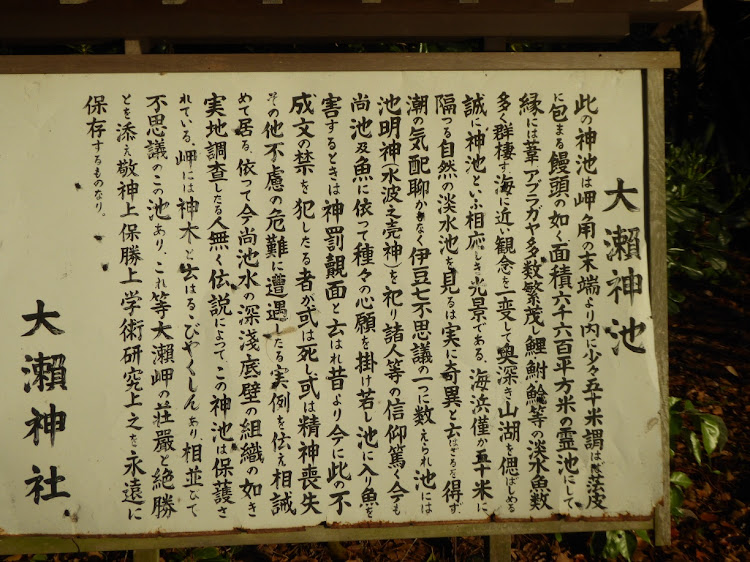 大瀬神池
此の神池は岬角の末端より内に少々五十米謂はば薄皮
に包まる饅頭の如く、面積六千六百平方米の霊池にして
縁には葦アブラガヤ多数繁茂し鯉鮒鯰等の淡水魚数
多く群棲す海に近い観念を一変して奥深き山湖を偲ばしめる
誠に神池といふ相応しき光景である、海浜僅か五十米に
隔つる自然の淡水池を見るは実に奇異と云はざるを得ず、
潮の気配聊かもなく伊豆七不思議の一つに数えられ池には
池明神(水波之売神)を祀り諸人等の信仰篤く今でも
尚池及魚に依って種々の心願を掛け若し池に入り魚を
害するときは神罰覿面と云はれ昔より今に此の不
成文の禁を犯したる者が或は死し或は精神喪失
その他不慮の危難に遭遇したる実例を伝え相誡
めて居る、依って今尚池水の深浅底壁の組織の如き
実地調査したる人無く伝説によってこの神池は保護さ
れている、岬には神木と云はるびやくしんあり相並びて
不思議のこの池あり、これ等大瀬岬の荘厳と絶勝
とを添え敬神上保勝上学術研究上之を永遠に
保存するものなり。
大瀬神社